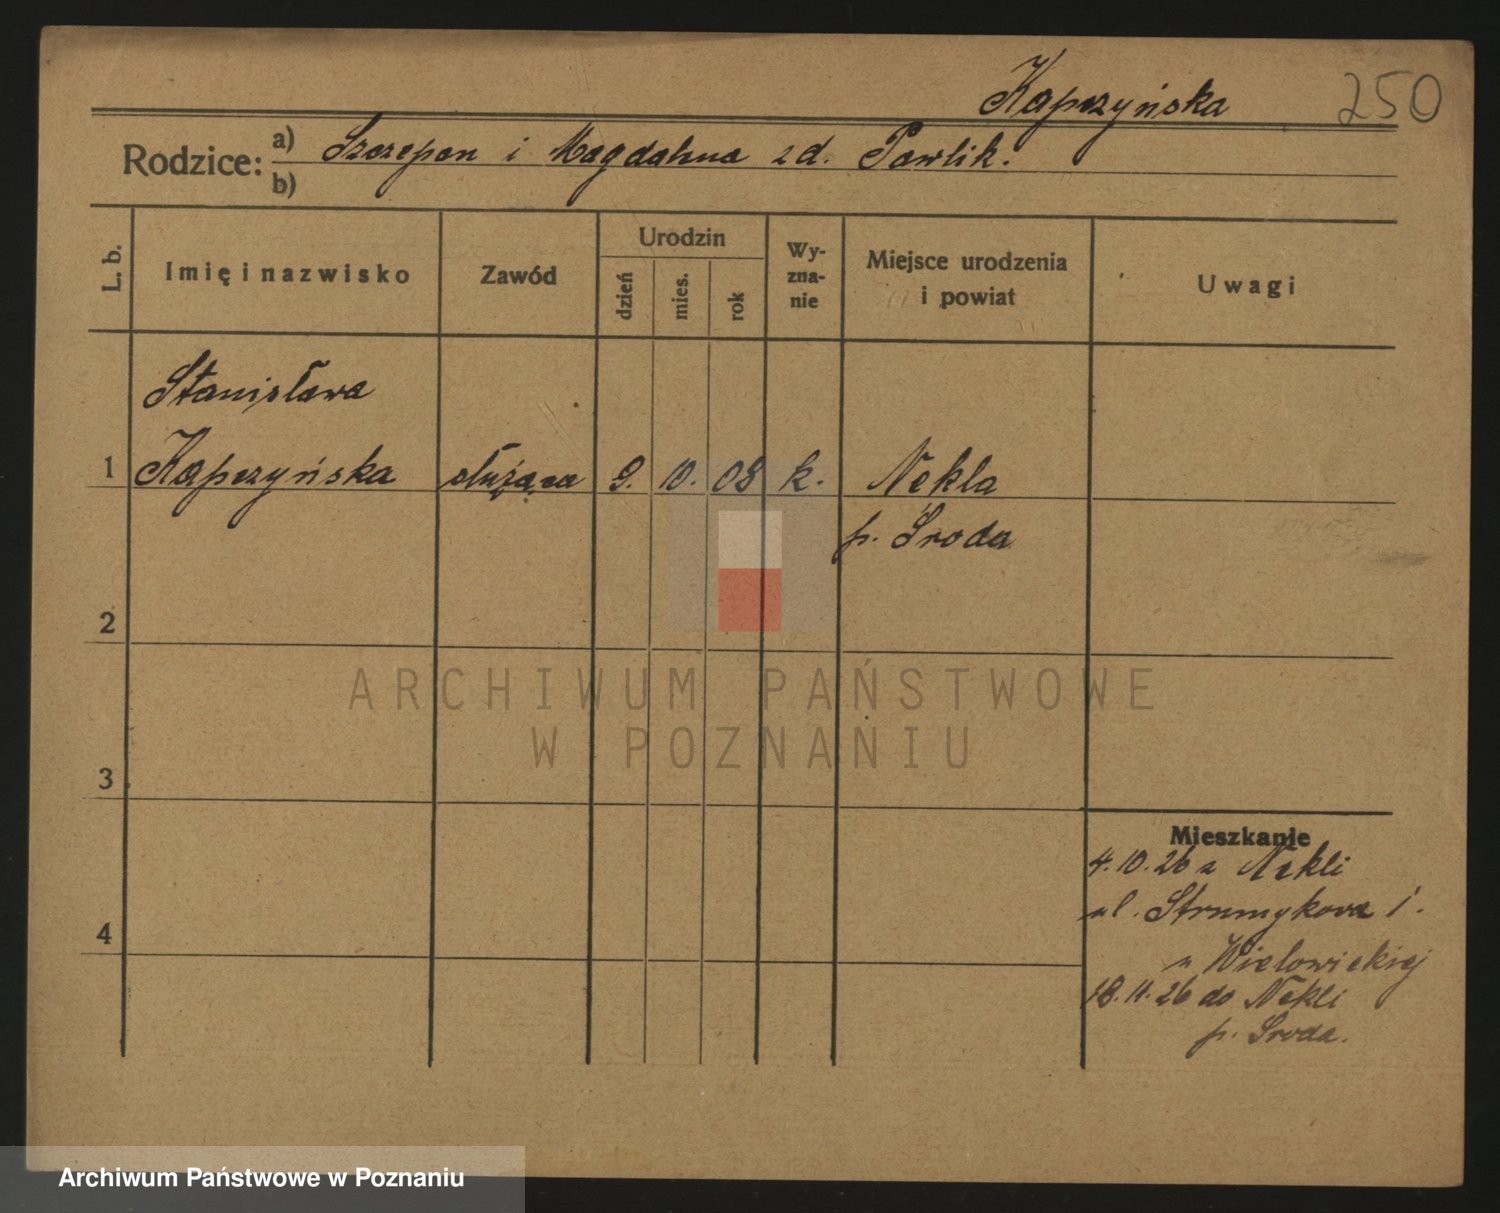 Kapczyńska 250
Rodzice: a) Szczepan i Magdalena zd. Pawlik.
b)
L. b. Imię i nazwisko Zawód Urodzin dzień mies. rok Wyznanie Miejsce urodzenia i powiat Uwagi
Stanisława
1 Kapczyńska służąca 9. 10. 08 k. Nekla
p. Środa
2
ARCHIWUM PAŃSTWOWE
W POZNANIU
3
Mieszkanie
4. 10. 26 z Nekli
ul. Strumykowa 1.
4
u Wielowickiej
18. 11. 26 do Nekli
p. Środa.
Archiwum Państwowe w Poznaniu